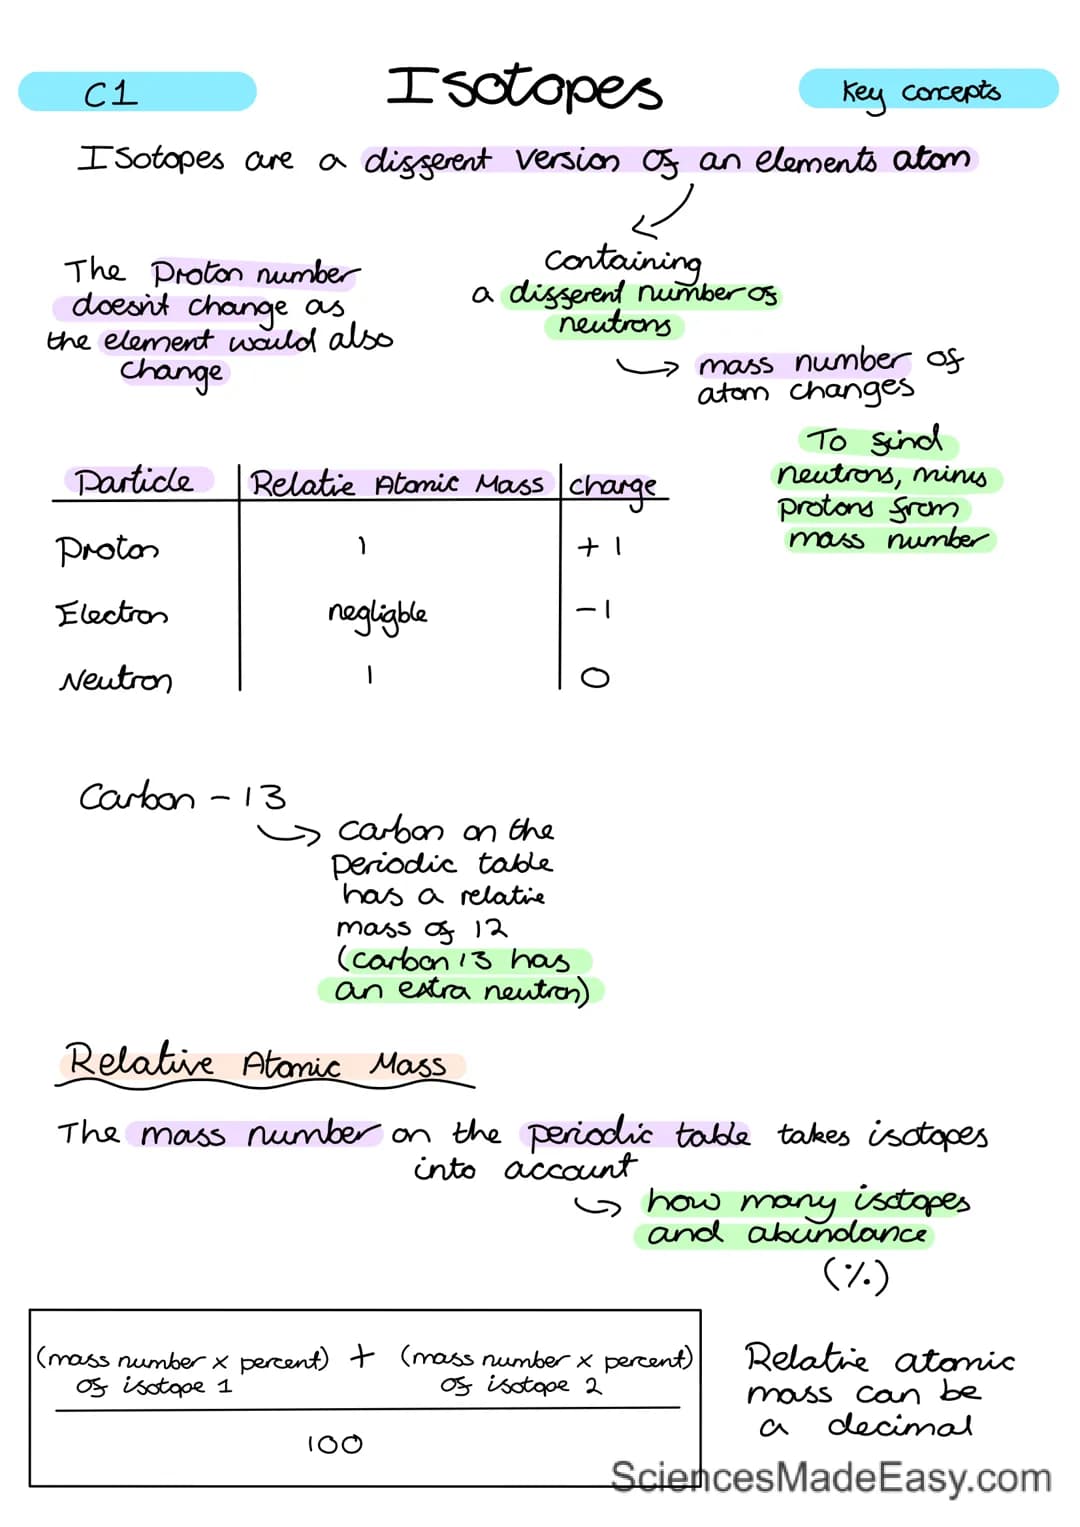 C1
Isotopes
Key concepts
Isotopes are a different version of an elements atom
containing
a different number of
neutrons
The Proton number
doesn't change as
the element would also
change
mass number of
atom changes
To find
neutrons, minus
protons from
mass number
Particle Relatie Atomic Mass charge
Proton 1 +1
Electron negligble -1
Neutron 1 0
Carbon - 13
carbon on the
periodic table
has a relatie
mass of 12
(carbon 13 has
an extra neutron)
Relative Atomic Mass
The mass number on the periodic table takes isotopes
into account
how many isotopes
and abundance
(%)
(mass number x percent) + (mass number x percent)
of isotope 1 of isotope 2
100
Relatie atomic
mass can be
a decimal
SciencesMadeEasy.com